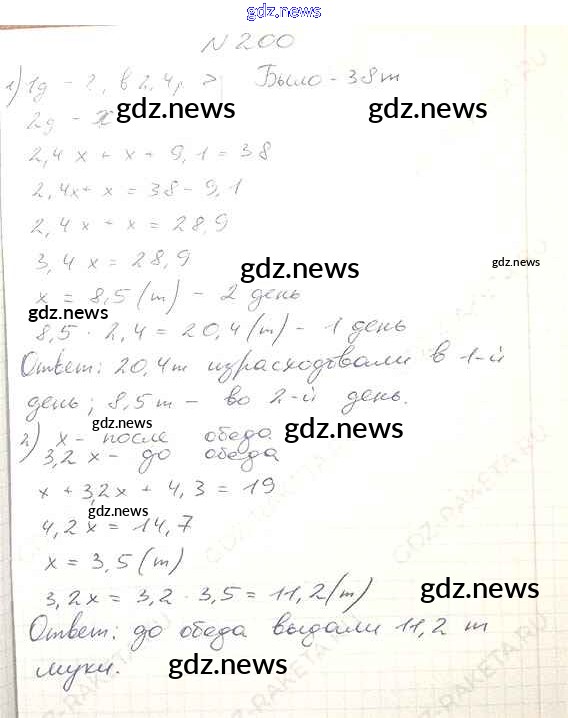 gdz.news
N 200
1) 1д - ?, в 2,4р > Было - 38т
2д - x
gdz.news gdz.news
2,4x + x + 9,1 = 38
2,4x + x = 38 - 9,1
2,4x + x = 28,9
3,4x = 28,9
gdz.news gdz.news
x = 8,5 (т) - 2 день
gdz.news
8,5 · 2,4 = 20,4 (т) - 1 день
Ответ: 20,4т израсходовали в 1-й
день; 8,5т - во 2-й день.
gdz.news gdz.news
2) x - после обеда
3,2x - до обеда
x + 3,2x + 4,3 = 19
gdz.news
4,2x = 14,7
x = 3,5 (т)
3,2x = 3,2 · 3,5 = 11,2 (т)
gdz.news
Ответ: до обеда выдали 11,2 т
муки.
gdz.news
GDZ-RAKETA.RU